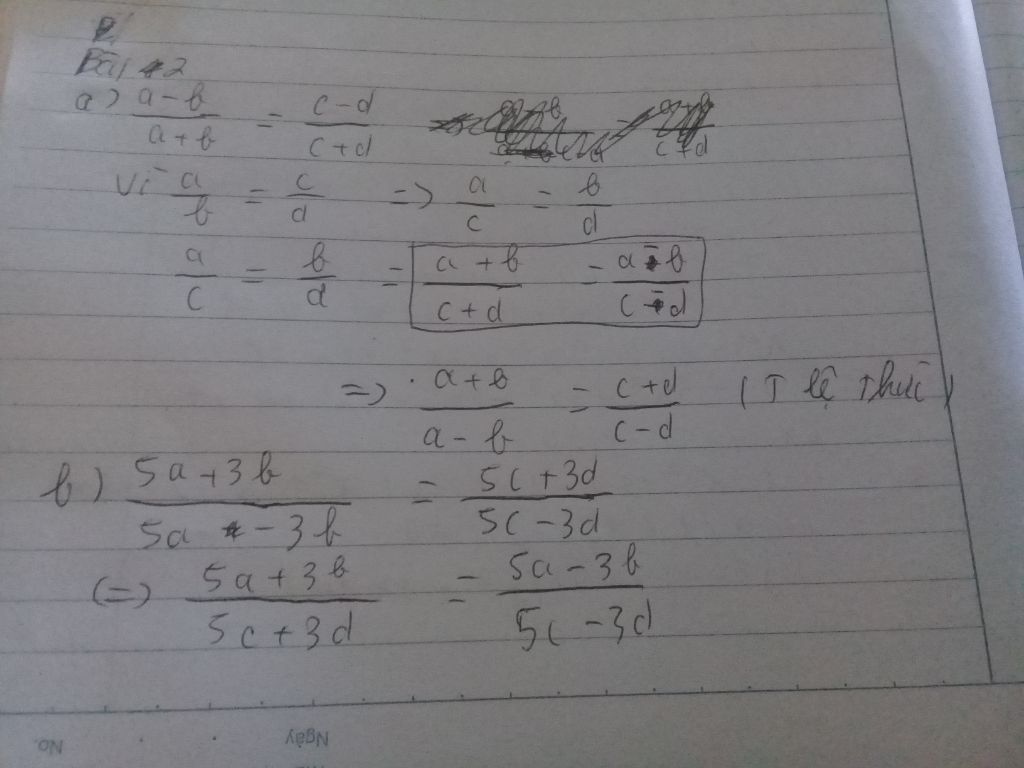 Bài 2
a) a-b/a+b = c-d/c+d
Vì a/b = c/d => a/c = b/d
a/c = b/d = a+b/c+d = a-b/c-d
=> a+b/a-b = c+d/c-d (T lệ thức)
b) 5a+3b/5a-3b = 5c+3d/5c-3d
(=) 5a+3b/5c+3d = 5a-3b/5c-3d
No.
Ngày